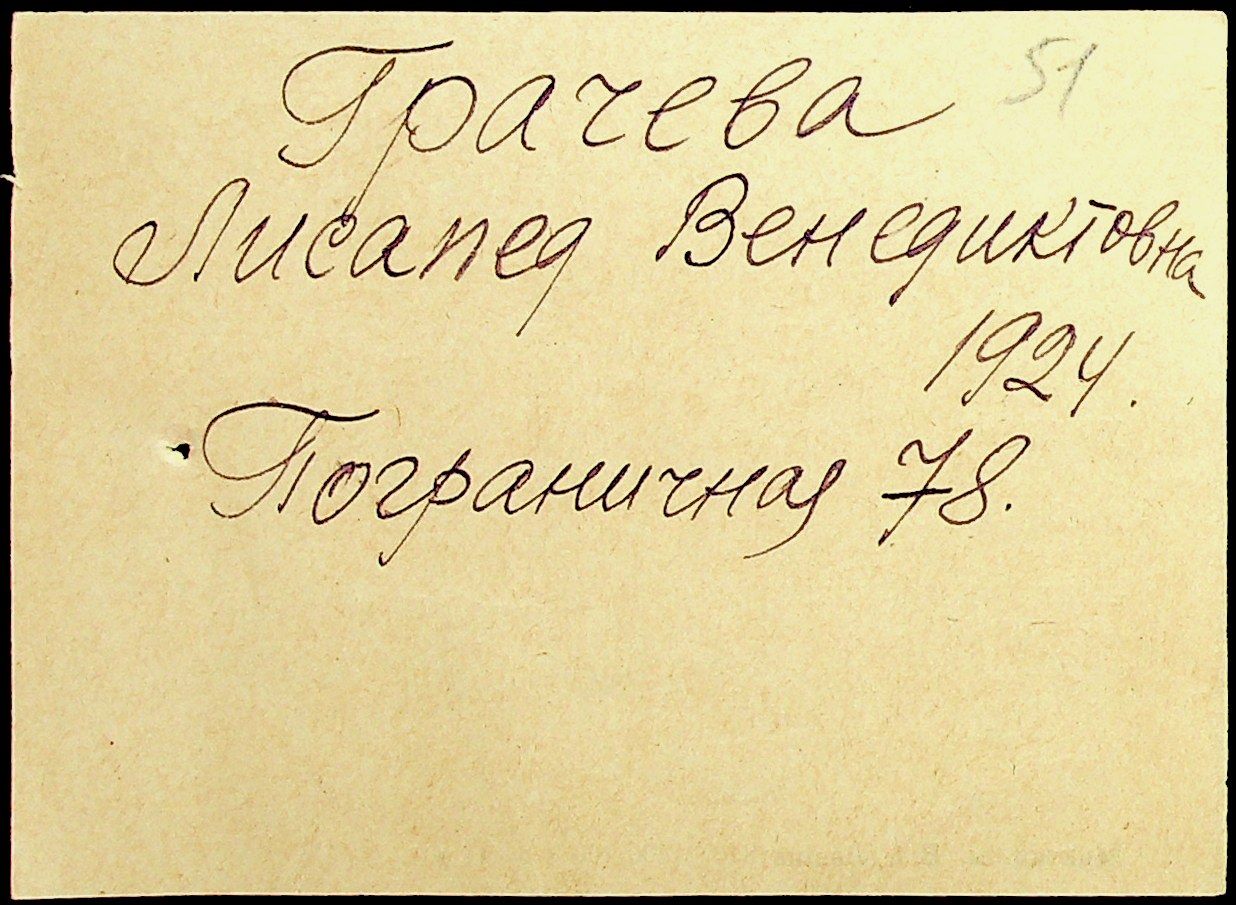 Грачева 51
Лисапед Венедиктовна
1924.
Пограничная 78.